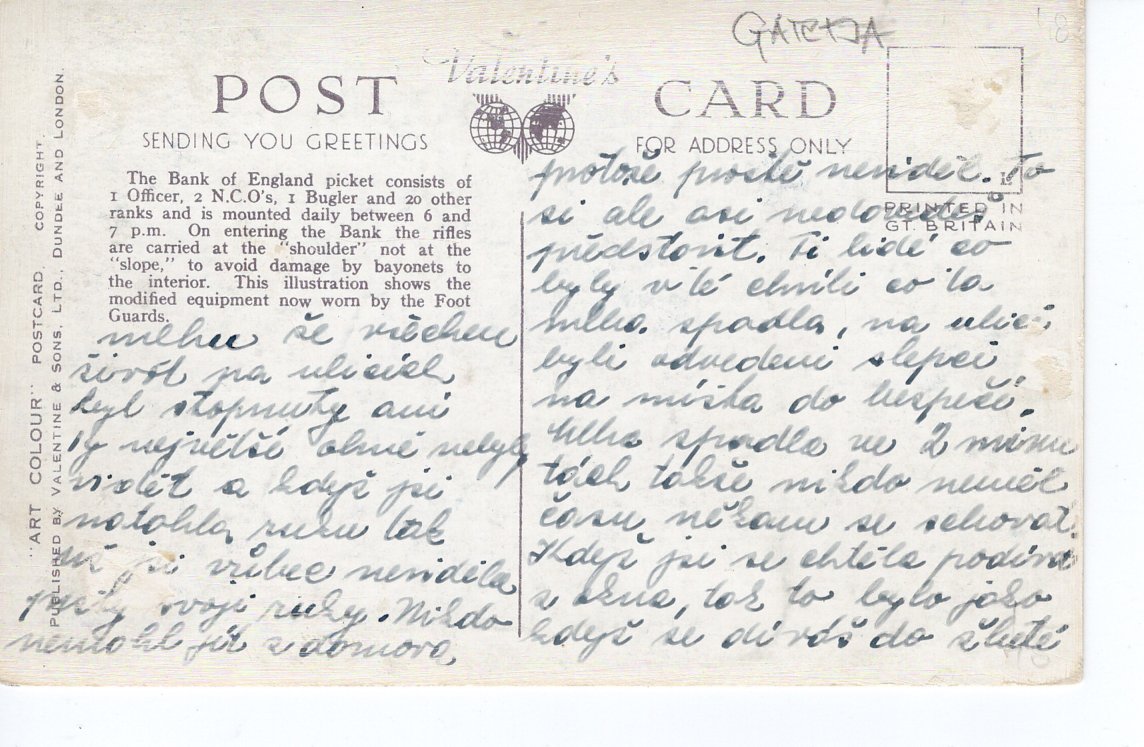 GARDA
Valentine's
POST CARD
SENDING YOU GREETINGS
FOR ADDRESS ONLY
The Bank of England picket consists of
1 Officer, 2 N.C.O's, 1 Bugler and 20 other
ranks and is mounted daily between 6 and
7 p.m. On entering the Bank the rifles
are carried at the "shoulder" not at the
"slope," to avoid damage by bayonets to
the interior. This illustration shows the
modified equipment now worn by the Foot
Guards.
"ART COLOUR" POSTCARD. COPYRIGHT.
PUBLISHED BY VALENTINE & SONS, LTD., DUNDEE AND LONDON.
PRINTED IN
GT. BRITAIN
mlhu že všechen
život na ulicích
byl stopnutý ani
ty největší ohně nebyly
vidět a když jsi
natáhla ruku tak
už jsi vůbec neviděla
prsty svojí ruky. Nikdo
nemohl jít z domova
protože prostě neviděl. To
si ale asi nedovedeš
představit. Ti lidé co
byly v té chvíli co ta
mlha spadla, na ulici,
byli odvedeni slepci
na místa do bezpečí.
Mlha spadla ve 2 minu
tách takže nikdo neměl
času někam se schovat.
Když jsi se chtěla podívat
z okna, tak to bylo jako
když se díváš do žluté